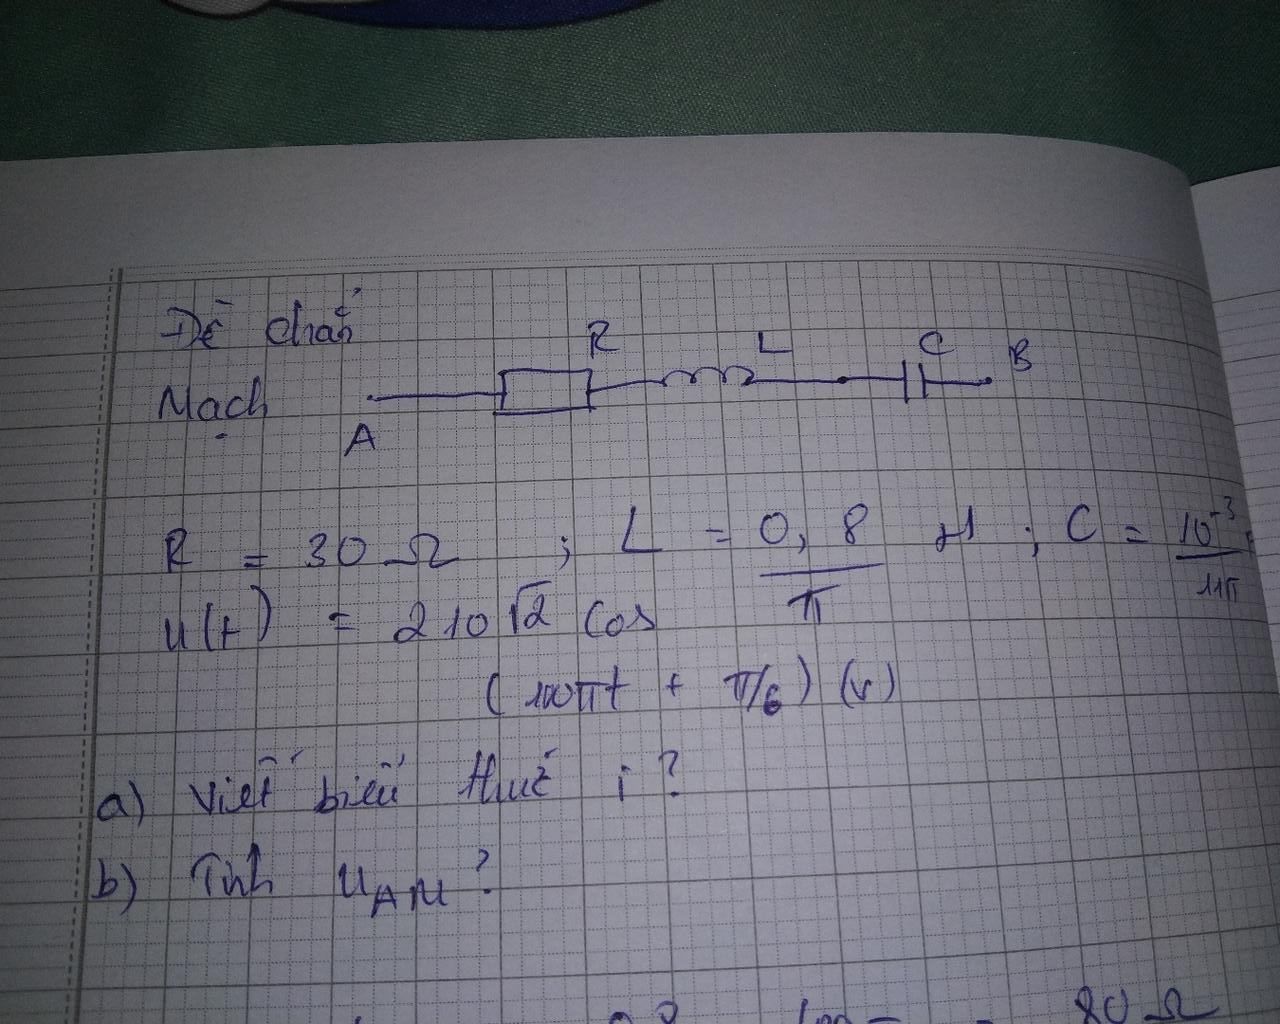 Đề chẵn
R L C B
Mạch
A
R = 30 Ω ; L = 0,8/π H ; C = 10⁻³/11π
u(t) = 210√2 cos
(100πt + π/6) (V)
a) Viết biểu thức i ?
b) Tính u_AM ?
80 Ω